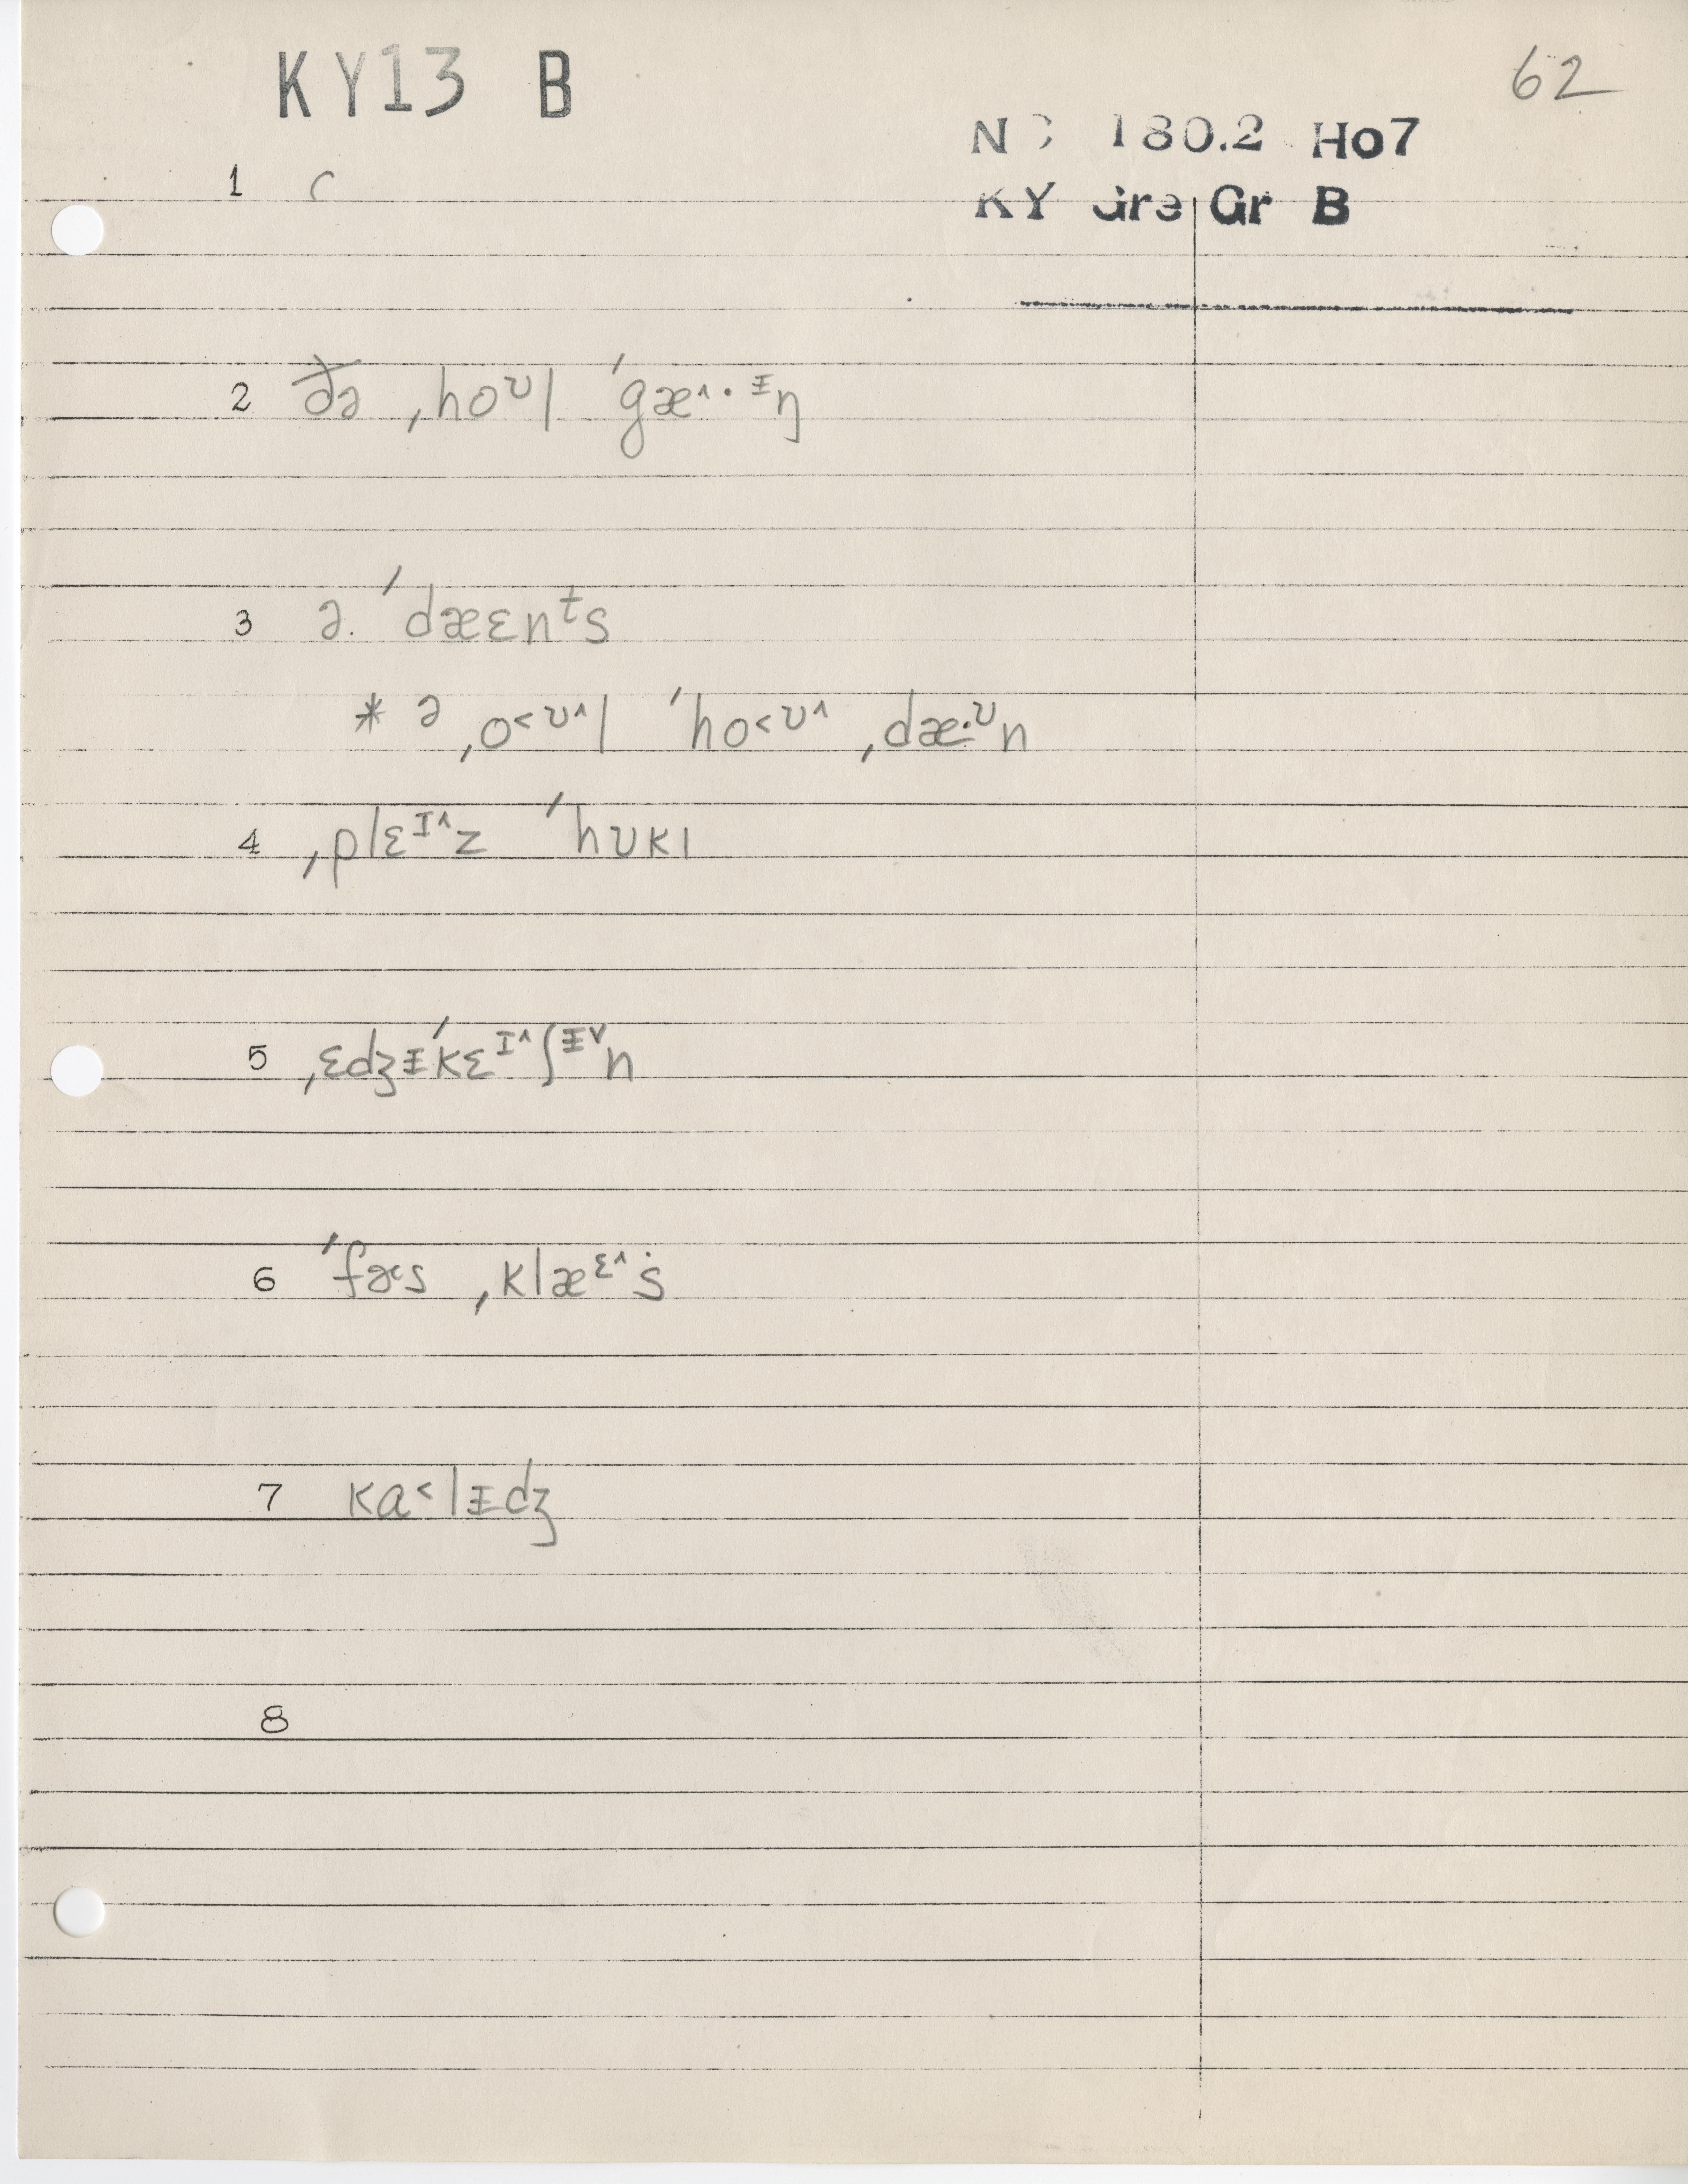 KY13 B
62
N 180.2 Ho7
KY Gre Gr B
1 c
2 ðə ˌhoᶷl ˈgæ˄·ᵻŋ
3 ə. ˈdæɛnᵗs
* ə ˌo˂ᶷ˄l ˈho˂ᶷ˄ ˌdæ·ᶷn
4 ˌplɛᶦ˄z ˈhʊkɪ
5 ˌɛdʒᵻˈkɛᶦ˄ʃᵻ˅n
6 ˈfɚs ˌklæᵋ˄ṡ
7 kɑ˂lᵻdʒ
8